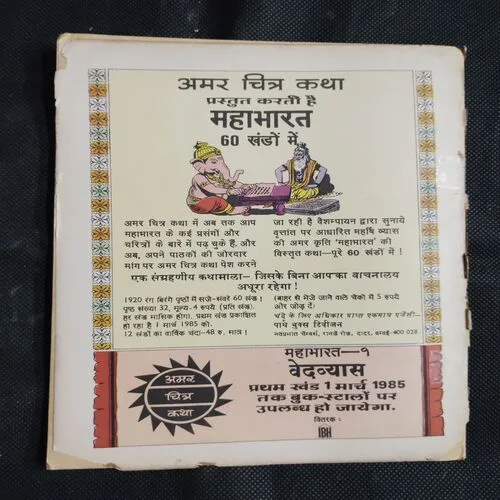 अमर चित्र कथा
प्रस्तुत करती है
महाभारत
60 खंडों में
अमर चित्र कथा में अब तक आप
महाभारत के कई प्रसंगों और
चरित्रों के बारे में पढ़ चुके हैं. और
अब, अपने पाठकों की जोरदार
मांग पर अमर चित्र कथा पेश करने
जा रही है वैशम्पायन द्वारा सुनाये
वृत्तांत पर आधारित महर्षि व्यास
की अमर कृति 'महाभारत' की
विस्तृत कथा—पूरे 60 खंडों में !
एक संग्रहणीय कथामाला— जिसके बिना आपका वाचनालय
अधूरा रहेगा !
1920 रंग बिरंगे पृष्ठों में सजे-संवरे 60 खंड।
पृष्ठ संख्या 32, मूल्य-4 रुपये (प्रति खंड)
हर खंड मासिक होगा. प्रथम खंड प्रकाशित
हो रहा है 1 मार्च 1985 को.
12 खंडों का वार्षिक चंदा-48 रु. मात्र !
(बाहर से भेजे जाने वाले चेकों में 5 रुपये
और जोड़ दें)
चंदे के लिए अधिकार प्राप्त एकमात्र एजेंसी—
पार्थ बुक्स डिवीजन
नवप्रभात चेम्बर्स, रानडे रोड, दादर, बम्बई-400 028
महाभारत—१
वेदव्यास
प्रथम खंड 1 मार्च 1985
तक बुक-स्टालों पर
उपलब्ध हो जायेगा.
वितरक :
IBH
अमर
चित्र
कथा